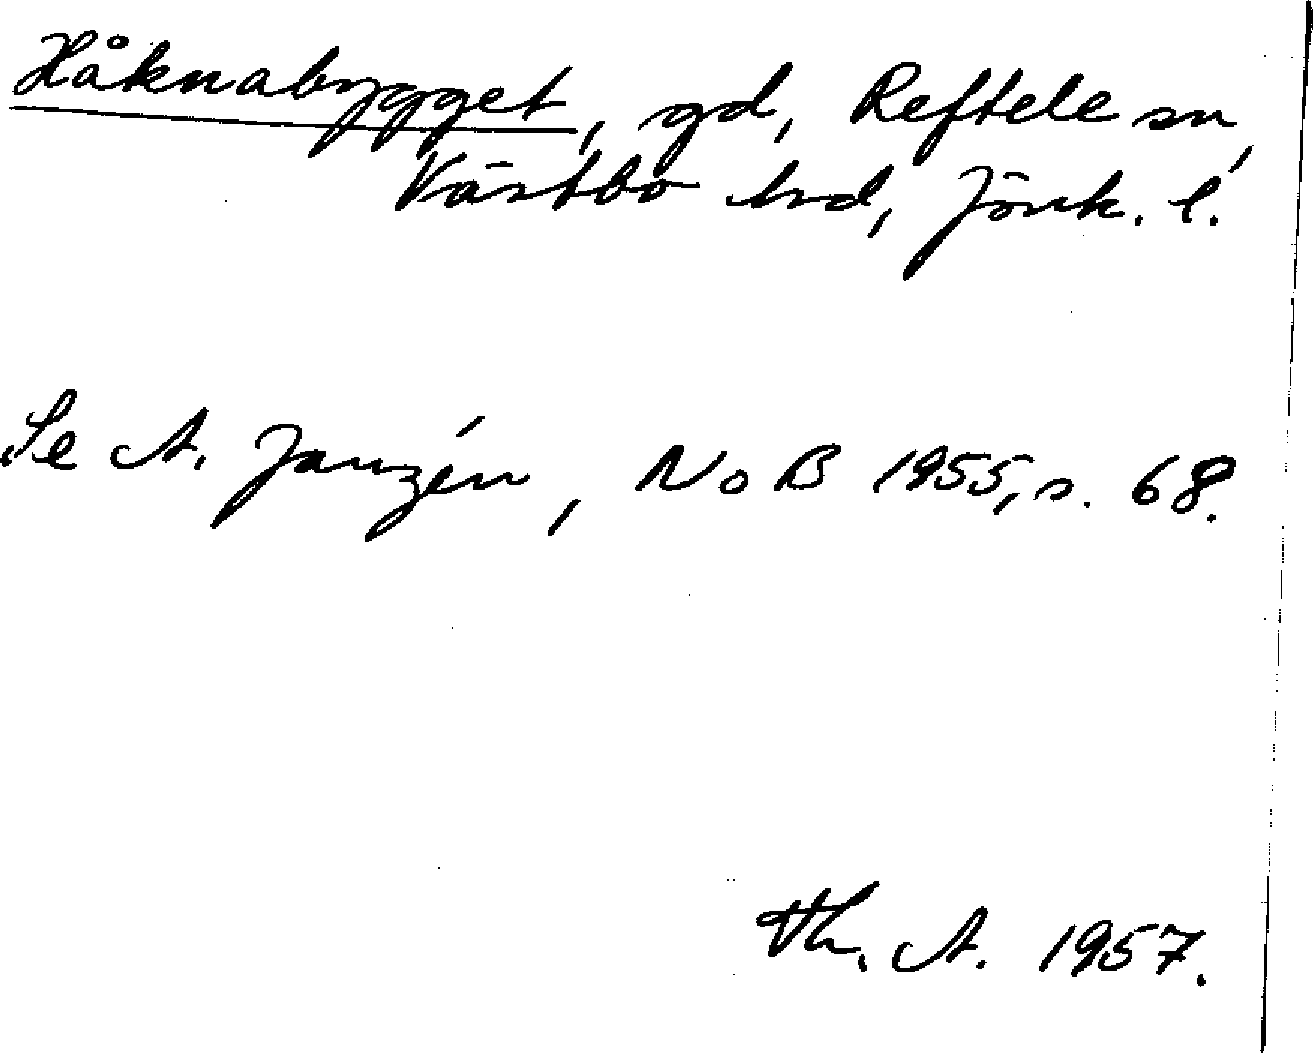 Håknabygget, gd, Reftele sn,
Västbo hrd, Jönk. l.
Se A. Janzén, NoB 1955, s. 68.
Th. A. 1957.